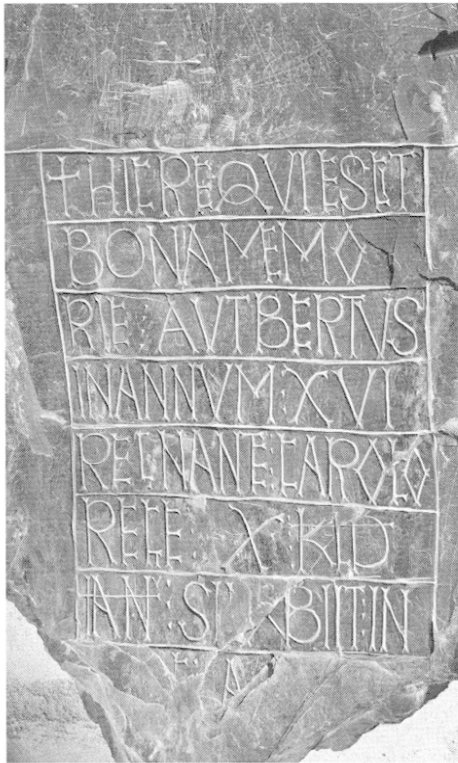 + HIC REQVIESCIT
BONA MEMO
RIE : AVTBERTVS
IN ANNVM : XVI
REGNANTE : CAROLO
REGE : X KLD
IAN : BIIT : IN